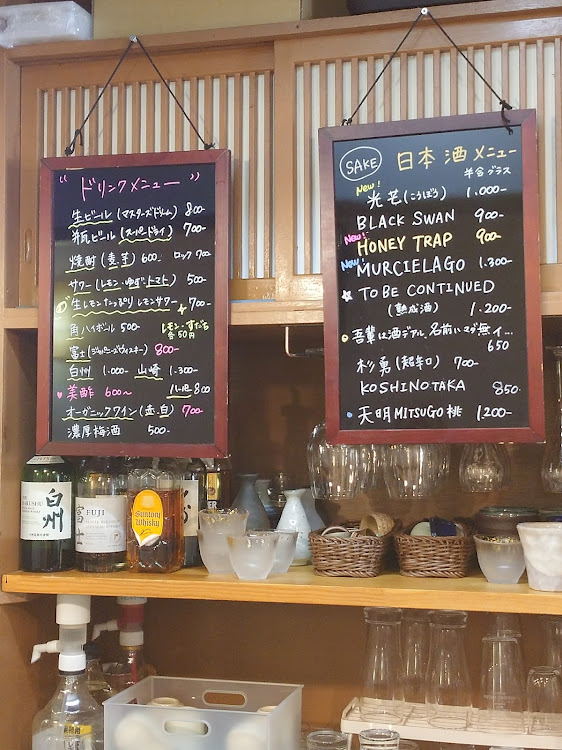 "ドリンクメニュー"
生ビール(マスターズドリーム) 800-
瓶ビール(スーパードライ) 700-
焼酎(麦、芋) 600- ロック 700-
サワー(レモン・ゆず・トマト) 500-
生レモンたっぷりレモンサワー 700-
角ハイボール 500- レモン・すだち
各50円
富士(ジャパニーズウイスキー) 800-
白州 1.000- 山崎 1.300-
♥ 美酢 600〜 800-
オーガニックワイン(赤、白) 700
濃厚梅酒 500-
SAKE 日本酒メニュー
半合グラス
New! 光芒(こうぼう) 1.000-
BLACK SWAN 900-
New! HONEY TRAP 900-
New! MURCIELAGO 1.300-
☆ TO BE CONTINUED
(熟成酒) 1.200-
吾輩は酒デアル、名前ハマダ無イ…
650
杉勇(超辛口) 700-
KOSHINOTAKA 850-
天明 MITSUGO 桃 1.200-
白州
FUJI
富士
Suntory
Whisky